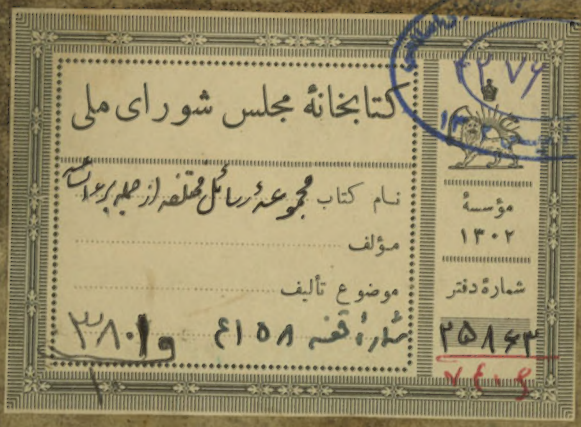 کتابخانهٔ مجلس شورای ملی
نام کتاب مجموعهٔ رسائل مختلفه از جمله برء الساعه
مؤلف
موضوع تألیف
شمارهٔ قفسه
مؤسسهٔ
۱۳۰۲
شمارهٔ دفتر
۲۵۸۶۳